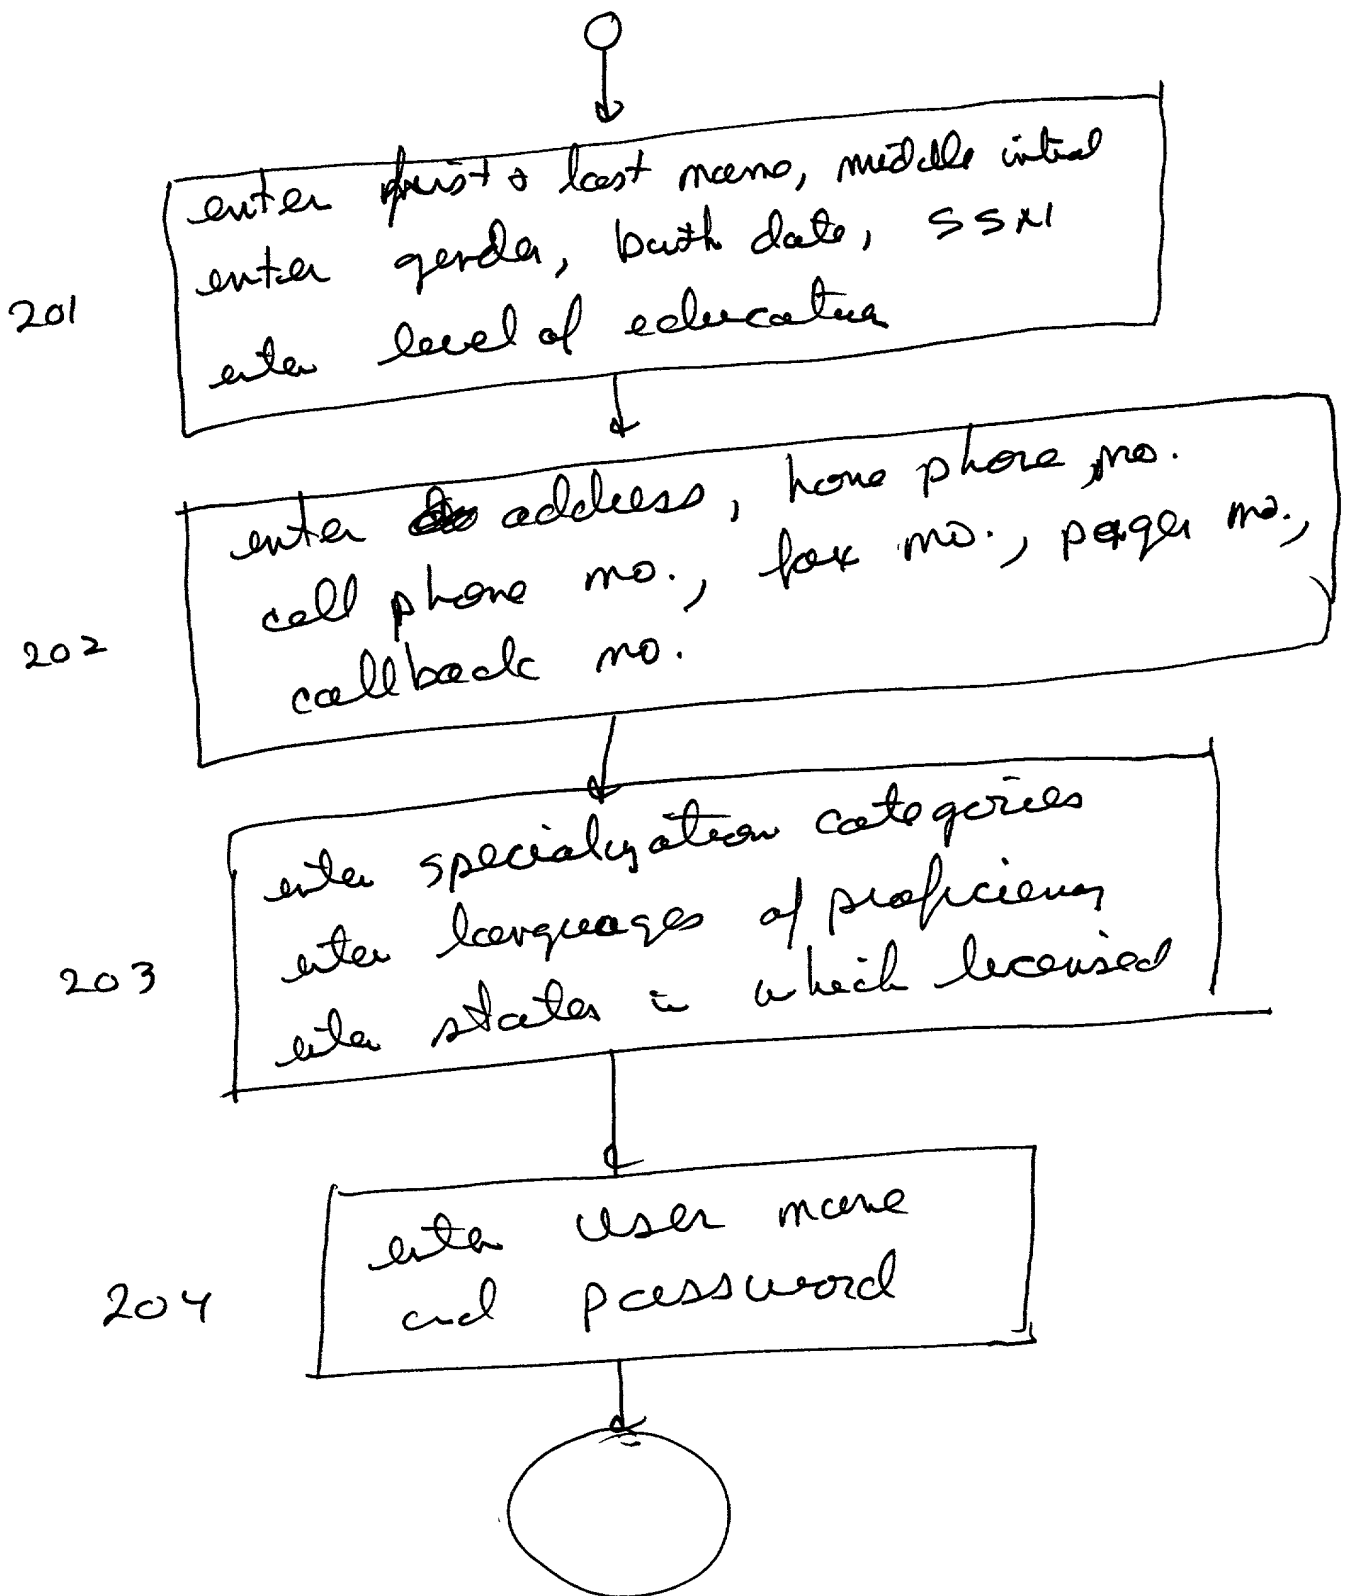 enter first & last name, middle initial
enter gender, birth date, SSN
201
enter level of education
enter address, home phone no.
cell phone no., fax no., pager no.,
202
callback no.
enter specialization categories
enter languages of proficiency
203
enter states in which licensed
enter user name
204
and password